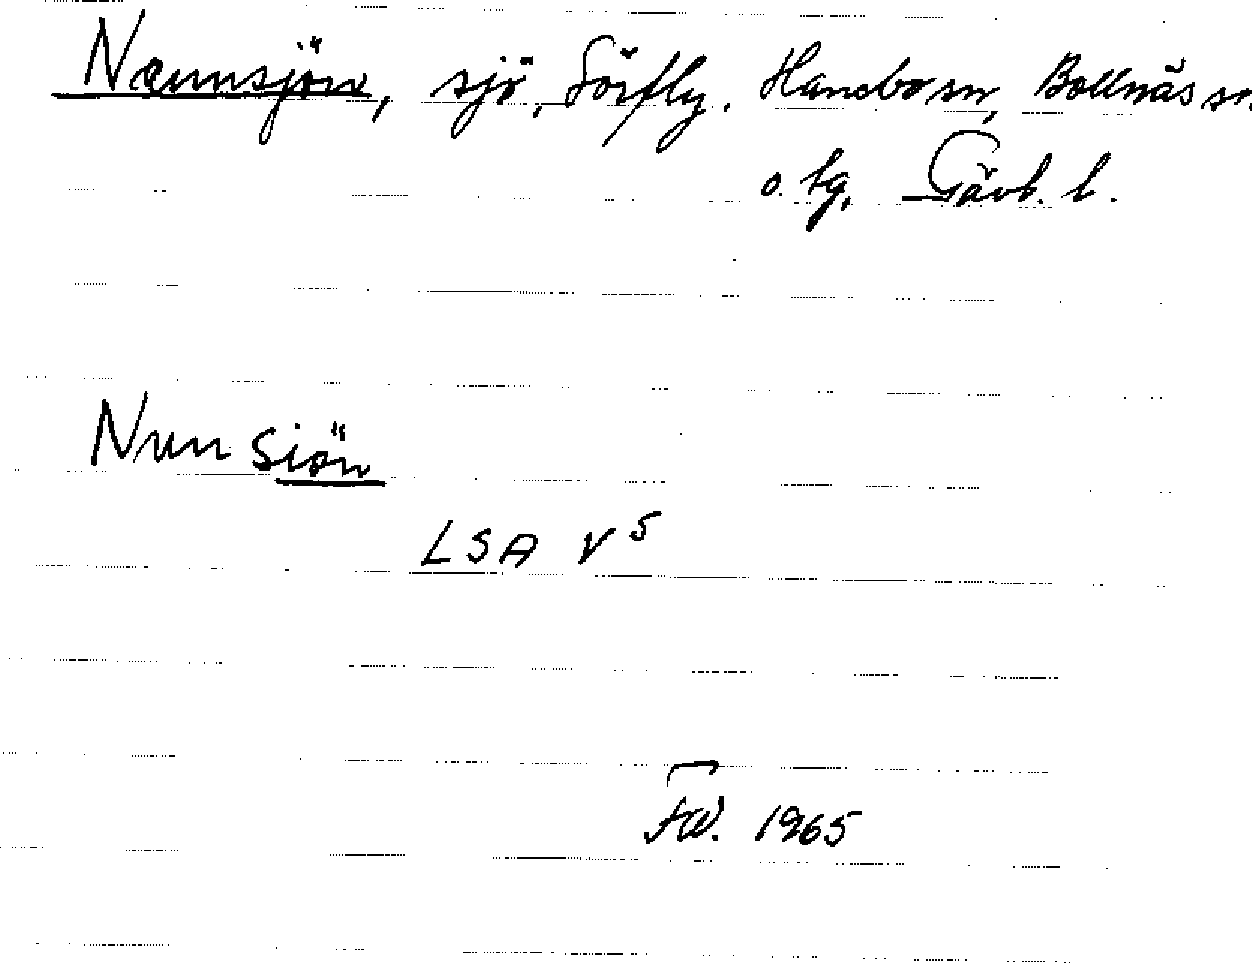 Nannsjön, sjö, Sörfly. Hanebo sn, Bollnäs sn.
o. tg, Gävl. l.
Nunsiön
LSA V 5
FW. 1965